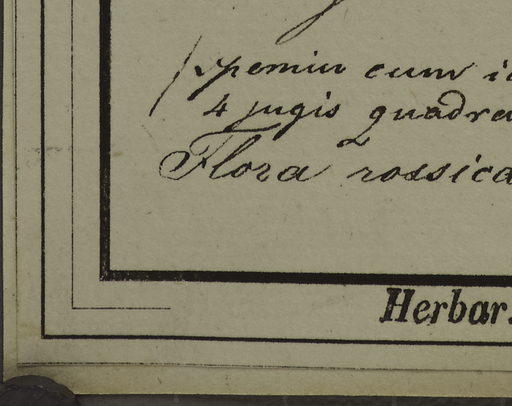 specimin cum ic
4 jugis quadra
Flora rossica
Herbar.